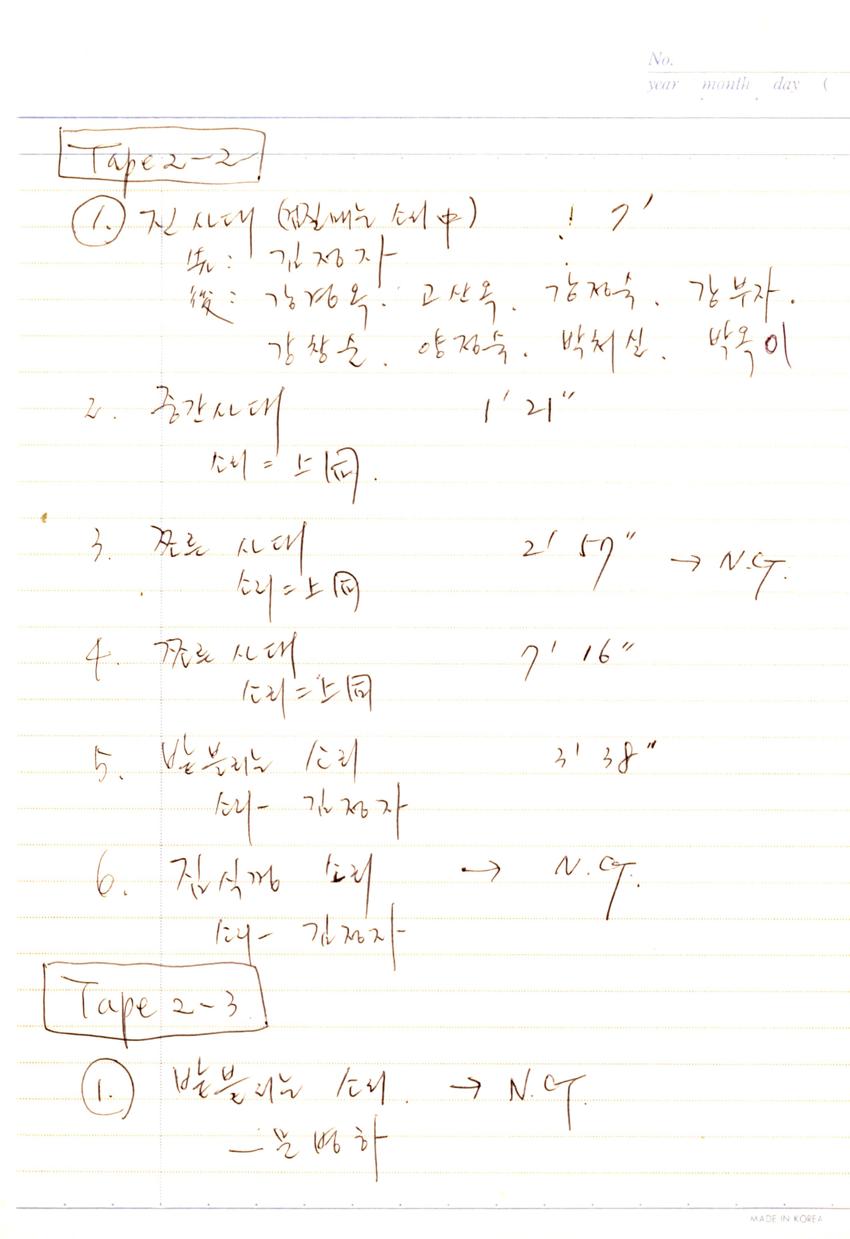 No.
year month day (
Tape 2-2
①. 진 사대 (검질매는 소리 中) ! 7'
先: 김정자
後: 강경옥. 고산옥. 강정숙. 강부자.
강창순. 양정숙. 박처실. 박옥이
2. 중간사대 1' 21"
소리 = 上同.
3. 쯔른 사대 2' 57" → N.G.
소리 = 上同
4. 쯔른 사대 7' 16"
소리 = 上同
5. 밭볼리는 소리 3' 38"
소리- 김정자
6. 집식껑 소리 → N.G.
소리- 김정자
Tape 2-3
①. 밭볼리는 소리. → N.G.
- 문병하
MADE IN KOREA